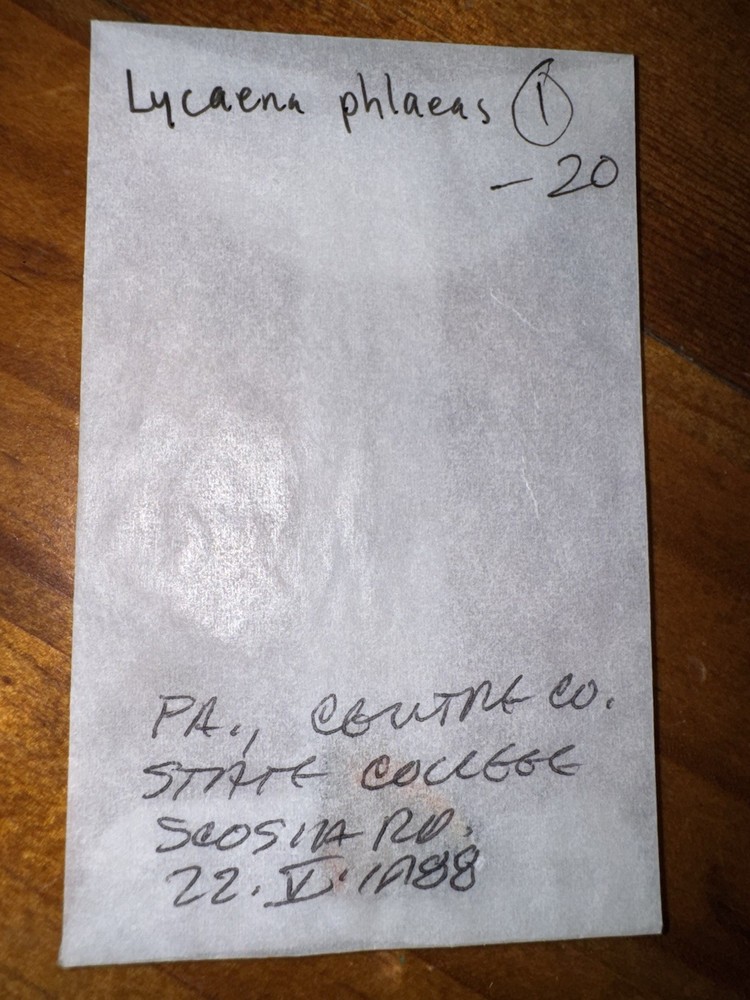 Lycaena phlaeas 1
- 20
PA., CENTRE CO.
STATE COLLEGE
SCOSIIA RD.
22.V.1988